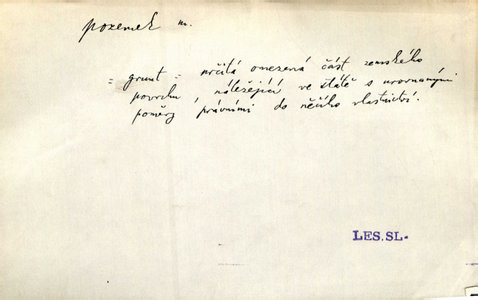 pozemek m.
= grunt = určitá omezená část zemského
povrchu, náležející ve státě s urovnanými
poměry právními do něčího vlastnictví.
LES. SL.